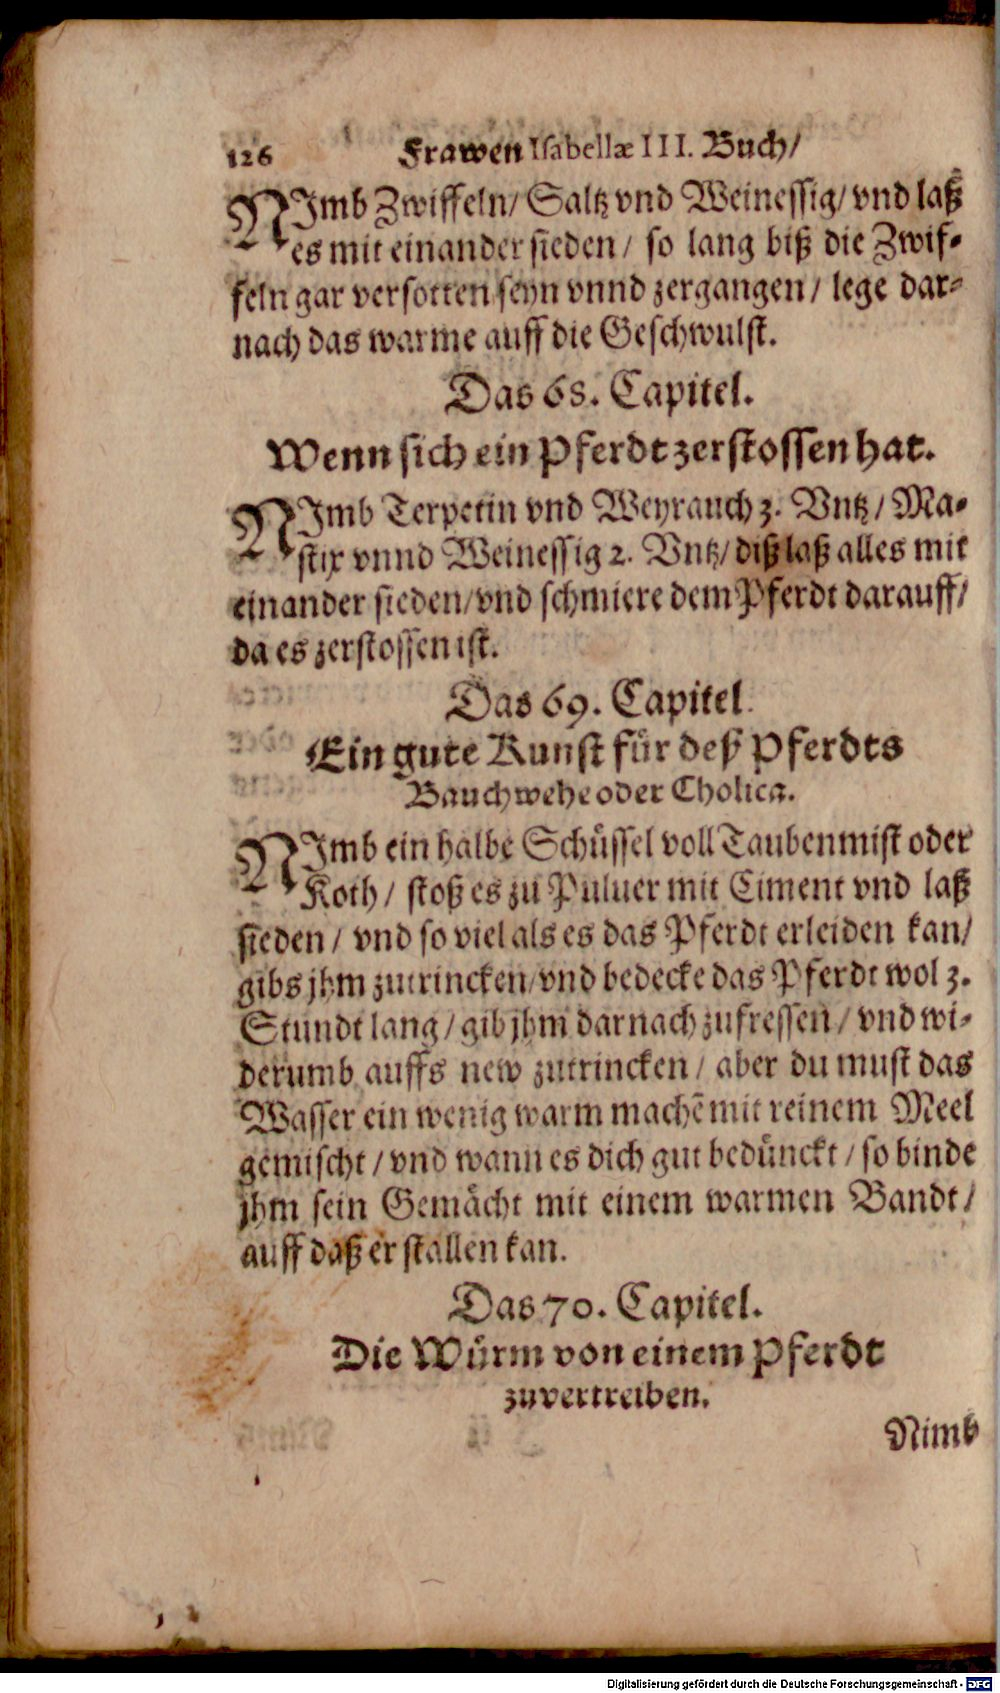 126 Frawen Isabellæ III. Buch/
NJmb Zwiffeln/ Saltz vnd Weinessig/ vnd laß
es mit einander sieden/ so lang biß die Zwif-
feln gar versotten seyn vnnd zergangen/ lege dar-
nach das warme auff die Geschwulst.
Das 68. Capitel.
Wenn sich ein Pferdt zerstossen hat.
NJmb Terpetin vnd Weyrauch 3. Vntz/ Ma-
stix vnnd Weinessig 2. Vntz/ diß laß alles mit
einander sieden/ vnd schmiere dem Pferdt darauff/
da es zerstossen ist.
Das 69. Capitel.
Ein gute Kunst für deß Pferdts
Bauchwehe oder Cholica.
NJmb ein halbe Schüssel voll Taubenmist oder
Koth/ stoß es zu Puluer mit Ciment vnd laß
sieden/ vnd so viel als es das Pferdt erleiden kan/
gibs jhm zutrincken/ vnd bedecke das Pferdt wol 3.
Stundt lang/ gib jhm darnach zufressen/ vnd wi-
derumb auffs new zutrincken/ aber du must das
Wasser ein wenig warm machẽ mit reinem Meel
gemischt/ vnd wann es dich gut bedünckt/ so binde
jhm sein Gemächt mit einem warmen Bandt/
auff daß er stallen kan.
Das 70. Capitel.
Die Würm von einem Pferdt
zuvertreiben.
Nimb
Digitalisierung gefördert durch die Deutsche Forschungsgemeinschaft - DFG